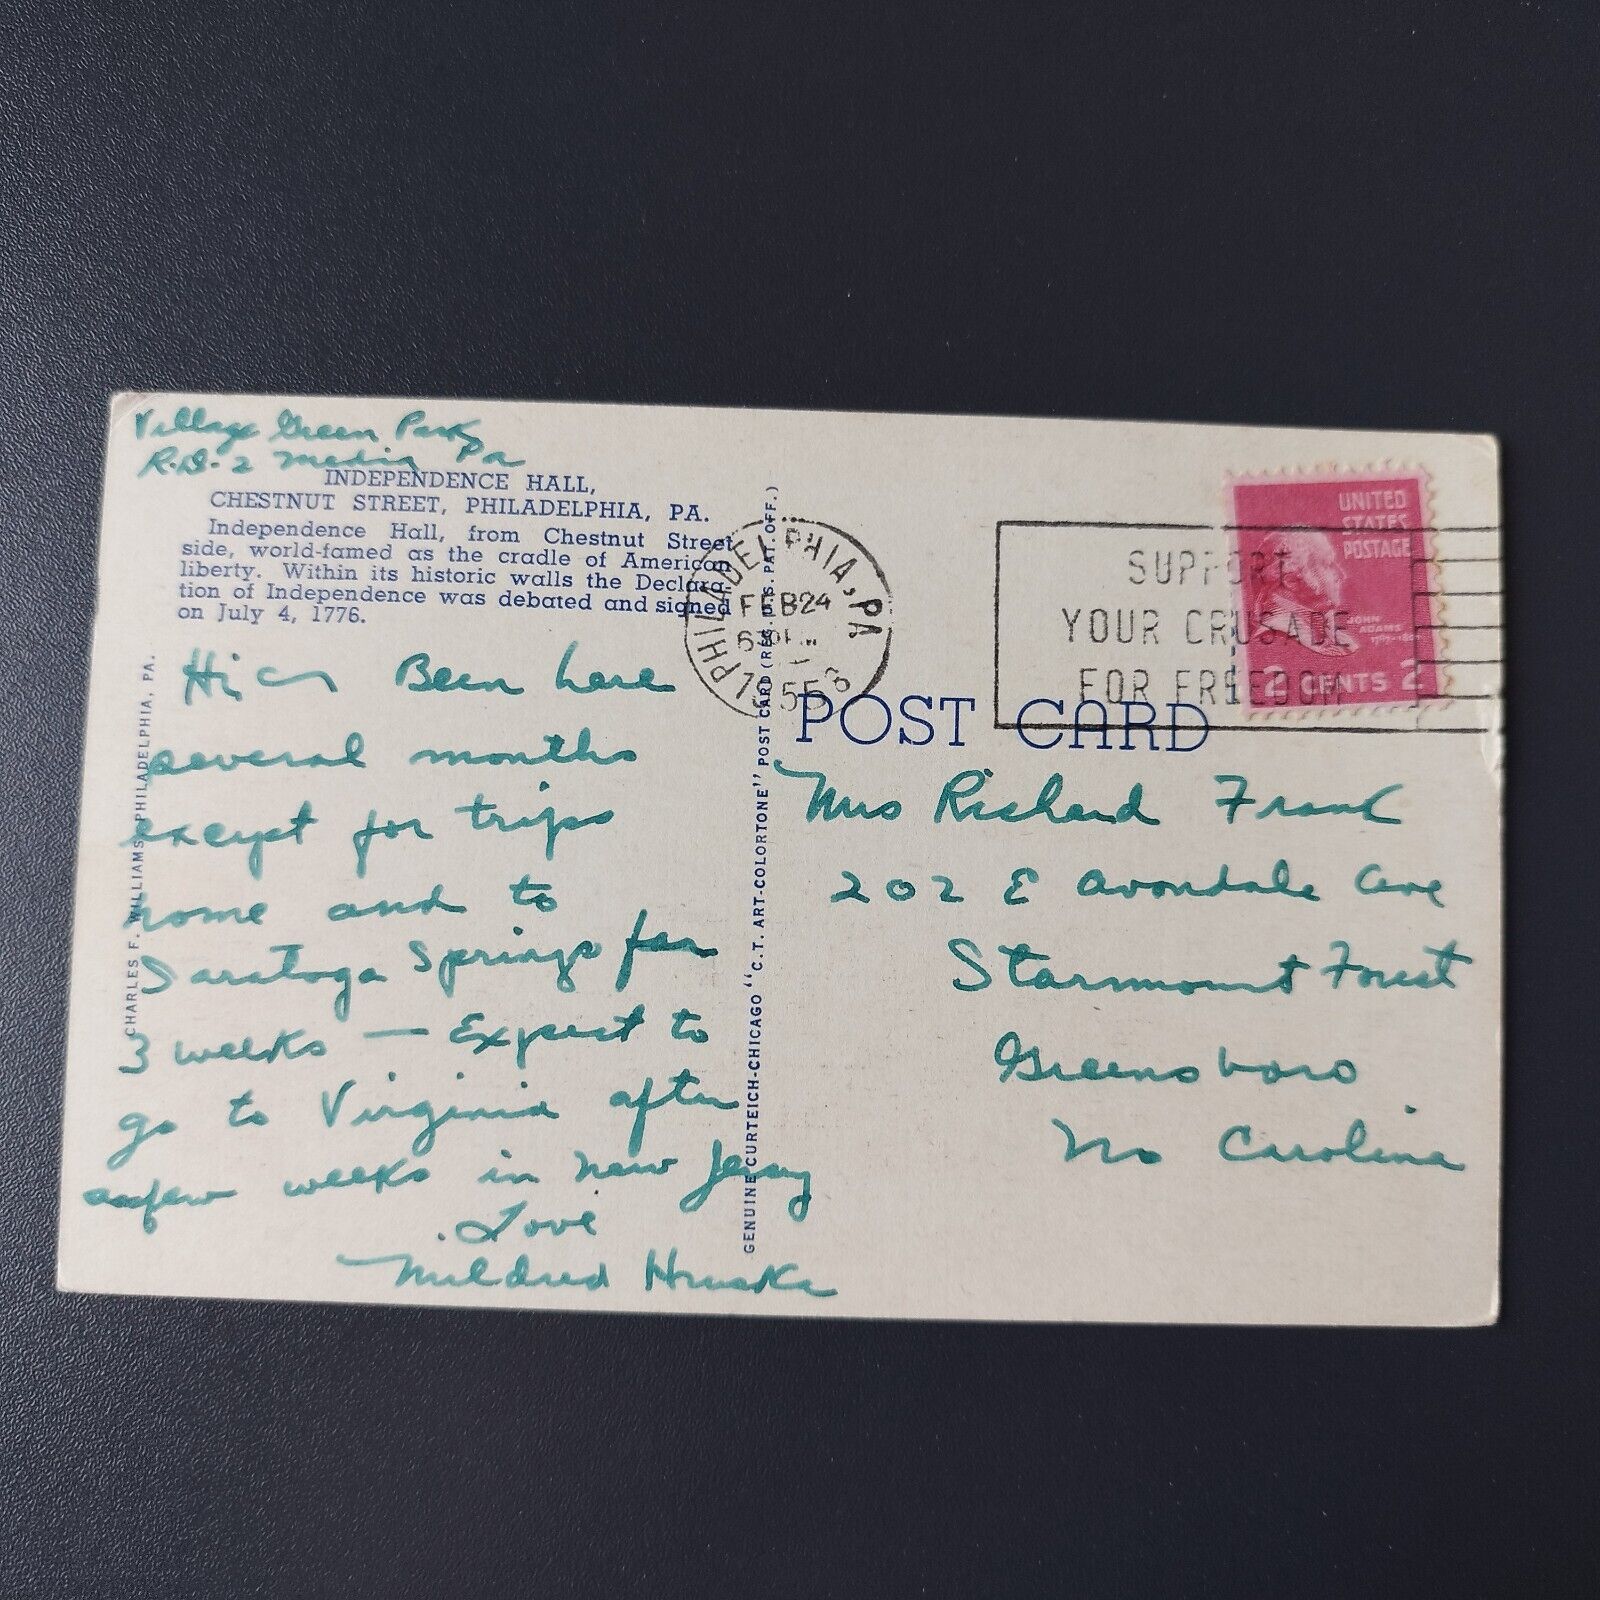 Village Green Park
R.D.-2 Media Pa
INDEPENDENCE HALL,
CHESTNUT STREET, PHILADELPHIA, PA.
Independence Hall, from Chestnut Street
side, world-famed as the cradle of American
liberty. Within its historic walls the Declara-
tion of Independence was debated and signed
on July 4, 1776.
Hi Been here
several months
except for trips
home and to
Saratoga Springs for
3 weeks — Expect to
go to Virginia after
a few weeks in New Jersey
Love
Mildred Hruska
CHARLES F. WILLIAMS, PHILADELPHIA, PA.
GENUINE CURTEICH-CHICAGO "C.T. ART-COLORTONE" POST CARD (REG. U.S. PAT. OFF.)
PHILADELPHIA, PA
FEB 24
SUPPORT
YOUR CRUSADE
FOR FREEDOM
UNITED
STATES
POSTAGE
JOHN
ADAMS
2 CENTS 2
POST CARD
Mrs Richard Frank
202 E Avondale Ave
Starmount Forest
Greensboro
No Carolina